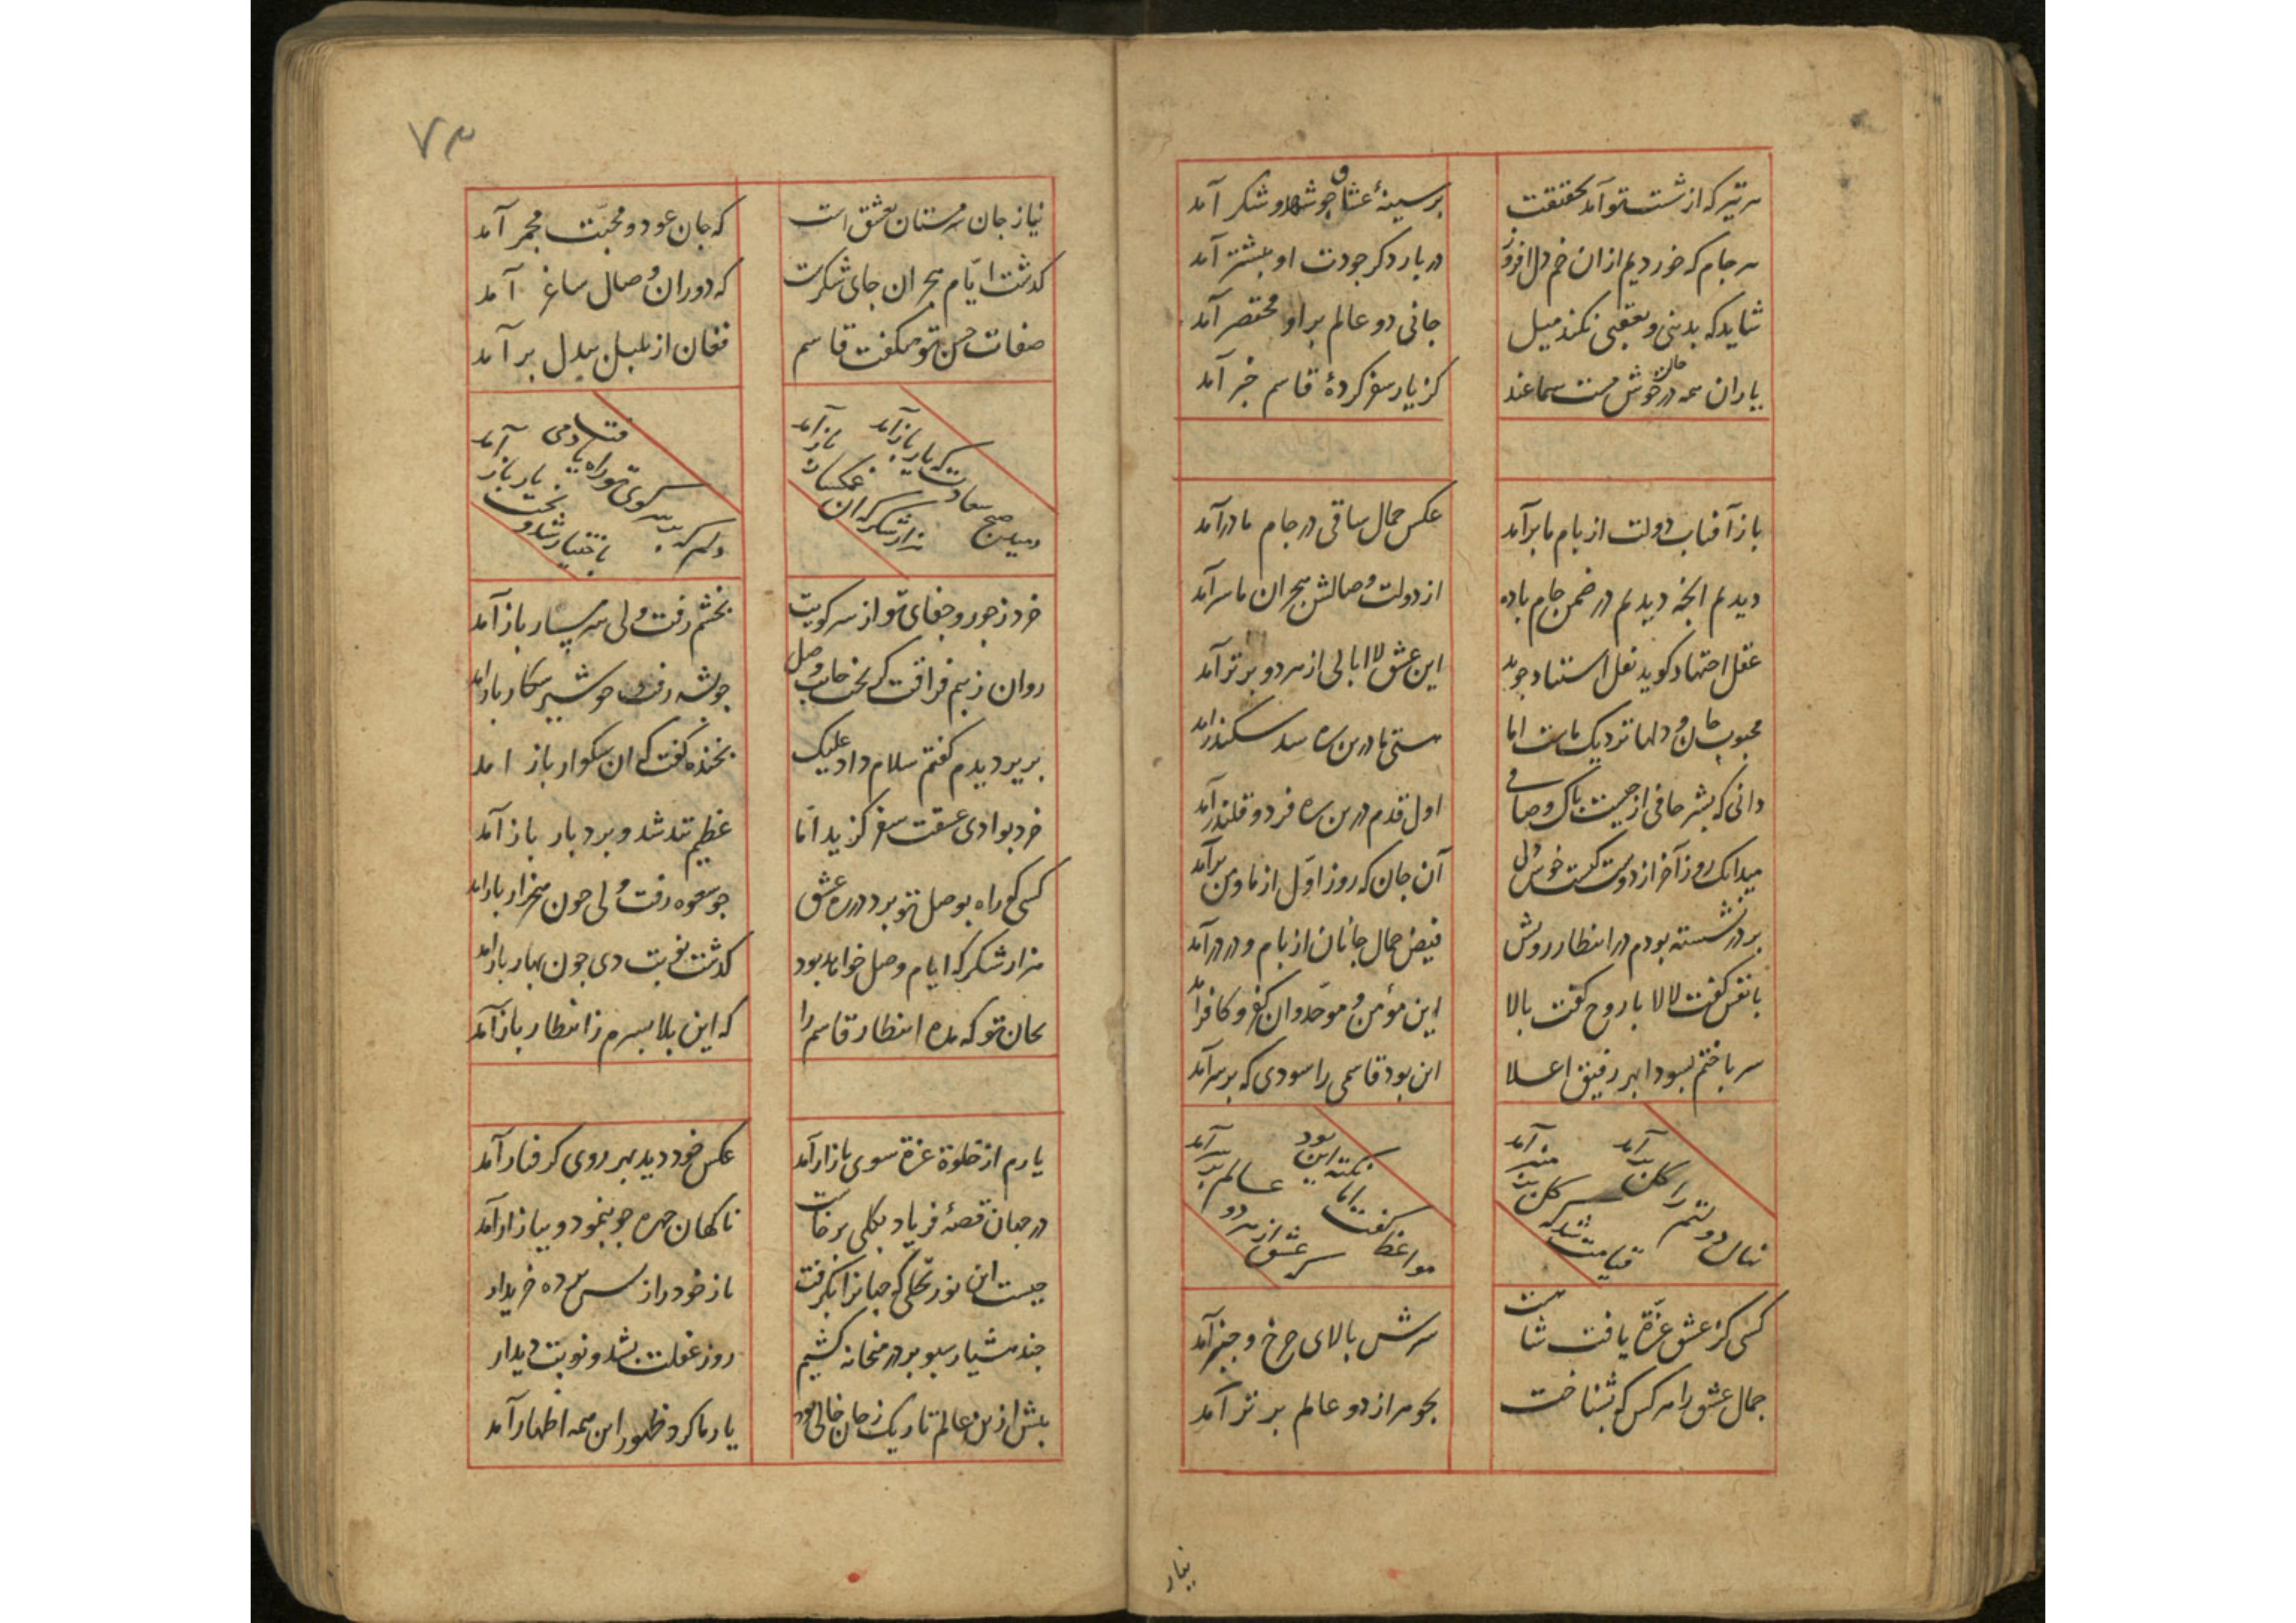 هر تیر که از شست تو آمد بحقیقت
بر سینهٔ عشاق چو شهد و شکر آمد
هر جام که خوردیم از ان خم دل افروز
در بار دکر جودت او بیشتر آمد
شاید که بدینی و بعقبی نکند میل
جانی دو عالم بر او مختصر آمد
یاران همه در خوش مست سماعند
کز یار سفر کردهٔ قاسم خبر آمد
باز آفتاب دولت از بام ما برآمد
عکس جمال ساقی در جام ما درآمد
دیدیم انچه دیدیم در ضمن جام باده
از دولت وصالش هجران ما سرآمد
عقل اجتهاد کوید نقل استناد جوید
این عشق لاابالی از هر دو برتر آمد
محبوب جان و دلها نزدیک ماست اما
هستی ما درین ره سد سکندر آمد
دانی که بشر حافی از چیست پاک و صافی
اول قدم درین ره فرد و قلندر آمد
میدانک روز آخر از دوست کشت خوش دل
آن جان که روز اول از ما و من برآمد
بر در نشسته بودم در انتظار رویش
فیض جمال جانان از بام و در درآمد
با نفس کفت لالا با روح کفت بالا
این مؤمن و موحد وان کفر و کافر آمد
سر باختم بسودا بهر رفیق اعلا
این بود قاسمی را سودی که بر سر آمد
نهال دولتم را کل بر آمد
قیامت شد که سرکل بر منبر آمد
مواعظ کفت اما نکته این بود
سر عشق از هر دو عالم بر تر آمد
کسی کز عشق عزة یافت شاهست
سرش بالای چرخ و چنبر آمد
جمال عشق را هر کس که بشناخت
بجوهر از دو عالم بر تر آمد
نیاز
۷۳
نیاز جان سرمستان عشق است
که جان عود و محبّت مجمر آمد
کذشت ایّام هجران جای شکرست
که دوران وصال ساغر آمد
صفات حسن تو میکفت قاسم
فغان از بلبل بیدل بر آمد
دمید صبح سعادت که یار باز آمد
هزار شکر که ان غمکسار باز آمد
دلم که بر سر کوی تو راه یافت دمی
باختیار شد و بخت یار باز آمد
خرد ز جور و جفای تو از سر کویت
بخشم رفت ولی شرمسار باز آمد
روان ز بیم فراقت کریخت جانب وصل
چو پشه رفت و چو شیر شکار باز آمد
بریر دیدم کفتم سلام داد علیک
بخنده کفت که ان سکوار باز امد
خرد بوادی عشقت سفر کزید امّا
عظیم تند شد و بردبار باز آمد
کسی که راه بوصل تو برد در ره عشق
چو صعوه رفت ولی چون هزار باز آمد
هزار شکر که ایام وصل خواهد بود
کذشت نوبت دی چون بهار باز آمد
بجان تو که مده انتظار قاسم را
که این بلا بسرم ز انتظار باز آمد
یارم از خلوة عزة سوی بازار آمد
عکس خود دید بهر روی کرفتار آمد
در جهان قصهٔ فریاد بکلی برخاست
ناکهان چهره چو بنمود و ببازار آمد
چیست این نور تجلی که جهانرا بکرفت
باز خود را ز پس پرده خریدار
چند هشیار سبو بر در میخانه کشیم
روز غفلت بشد و نوبت دیدار
پیش ازین عالم تاریک ز جان خالی بود
یار ما کرد ظهور این همه اظهار آمد